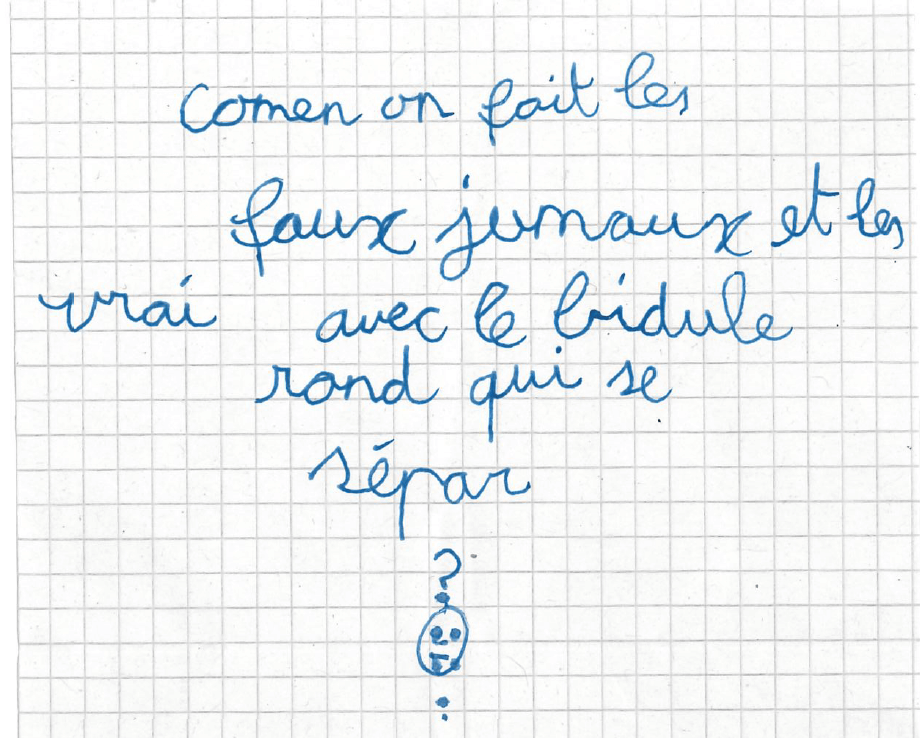 comen on fait les
faux jumaux et les
vrai avec le bidule
rond qui se
sépar
?